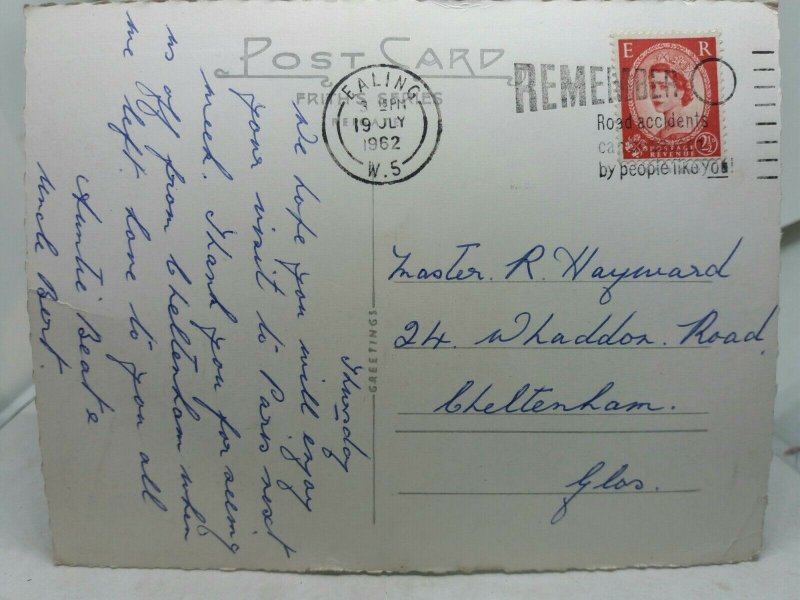 POST CARD
FRITH'S SERIES
EALING
3 PM
19 JLY
1962
W.5
REMEMBER
Road accidents
by people like you!
E R
2½
POSTAGE
REVENUE
GREETINGS
Thursday
We hope you will enjoy
your visit to Paris next
week. Thank you for seeing
us off from Cheltenham when
we left. Love to you all
Auntie Beat &
Uncle Bert.
Master. R. Hayward
24. Whaddon. Road,
Cheltenham.
Glos.